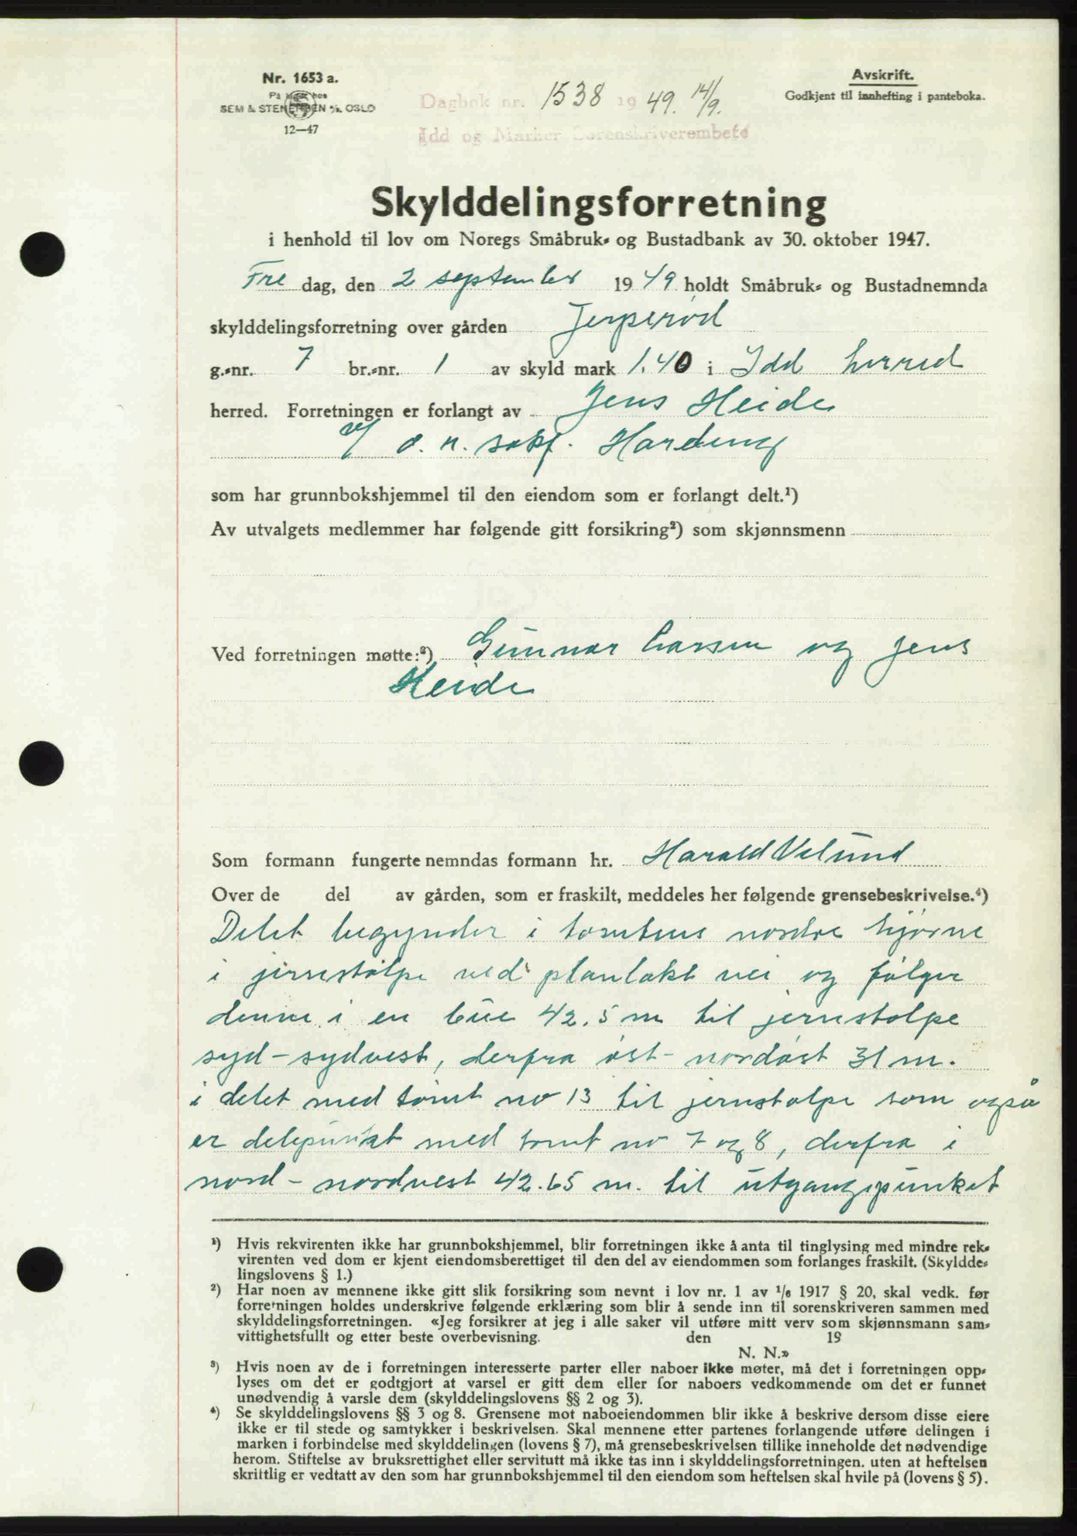 Nr. 1653 a.
På lager hos
SEM & STENERSEN A/S, OSLO
12—47
Dagbok nr. 1538 1949. 14/9.
Idd og Marker Sorenskriverembete
Avskrift.
Godkjent til innhefting i panteboka.
Skylddelingsforretning
i henhold til lov om Noregs Småbruk- og Bustadbank av 30. oktober 1947.
Fre dag, den 2 september 1949 holdt Småbruk- og Bustadnemnda
skylddelingsforretning over gården Jerperød
g.-nr. 7 br.-nr. 1 av skyld mark 1.40 i Idd herred
herred. Forretningen er forlangt av Jens Heide
v/ o. r. sakf. Hardeng
som har grunnbokshjemmel til den eiendom som er forlangt delt.¹)
Av utvalgets medlemmer har følgende gitt forsikring²) som skjønnsmenn
Ved forretningen møtte:³) Gunnar Larsen og Jens
Heide
Som formann fungerte nemndas formann hr. Harald
Over de del av gården, som er fraskilt, meddeles her følgende grensebeskrivelse.⁴)
Delet begynder i tomtens nordre hjørne
i jernstolpe ved planlakt vei og følger
denne i en bue 42.5 m til jernstolpe
syd-sydvest, derfra øst-nordøst 31 m.
i delet med tomt no 13 til jernstolpe som også
er delepunkt med tomt no 7 og 8, derfra i
nord-nordvest 42.65 m. til utgangspunket
¹) Hvis rekvirenten ikke har grunnbokshjemmel, blir forretningen ikke å anta til tinglysing med mindre rek-
virenten ved dom er kjent eiendomsberettiget til den del av eiendommen som forlanges fraskilt. (Skyldde-
lingslovens § 1.)
²) Har noen av mennene ikke gitt slik forsikring som nevnt i lov nr. 1 av 1/6 1917 § 20, skal vedk. før
forretningen holdes underskrive følgende erklæring som blir å sende inn til sorenskriveren sammen med
skylddelingsforretningen. «Jeg forsikrer at jeg i alle saker vil utføre mitt verv som skjønnsmann sam-
vittighetsfullt og etter beste overbevisning. den 19
N. N.»
³) Hvis noen av de i forretningen interesserte parter eller naboer ikke møter, må det i forretningen opp-
lyses om det er godtgjort at varsel er gitt dem eller for naboers vedkommende om det er funnet
unødvendig å varsle dem (skylddelingslovens §§ 2 og 3).
⁴) Se skylddelingslovens §§ 3 og 8. Grensene mot naboeiendommen blir ikke å beskrive dersom disse eiere
ikke er til stede og samtykker i beskrivelsen. Skal mennene etter partenes forlangende utføre delingen i
marken i forbindelse med skylddelingen (lovens § 7), må grensebeskrivelsen tillike inneholde det nødvendige
herom. Stiftelse av bruksrettighet eller servitutt må ikke tas inn i skylddelingsforretningen, uten at heftelsen
skriftlig er vedtatt av den som har grunnbokshjemmel til den eiendom som heftelsen skal hvile på (lovens § 5).